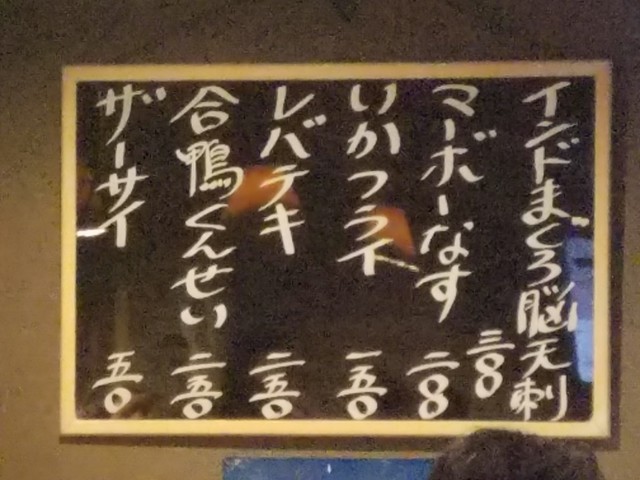 インドまぐろ脳天刺 三〇〇
マーボーなす 二〇〇
いかフライ 一五〇
レバテキ 二五〇
合鴨くんせい 二五〇
ザーサイ 五〇